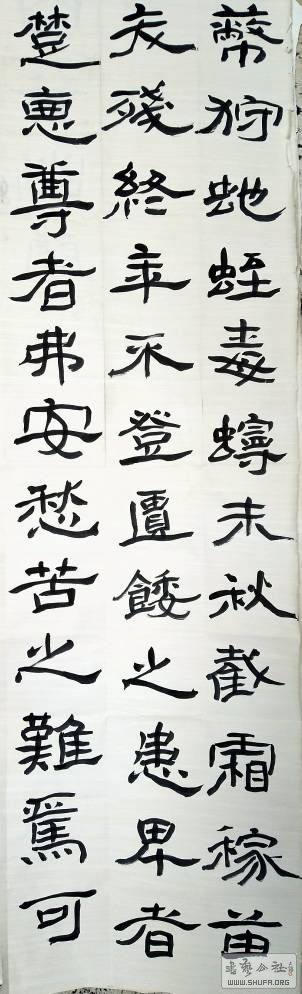 幣狩虵蛭毒蟃未秋截霜稼苗
夭殘終年不登匱餧之患卑者
楚惡尊者弗安愁苦之難焉可
书艺公社
WWW.SHUFA.ORG